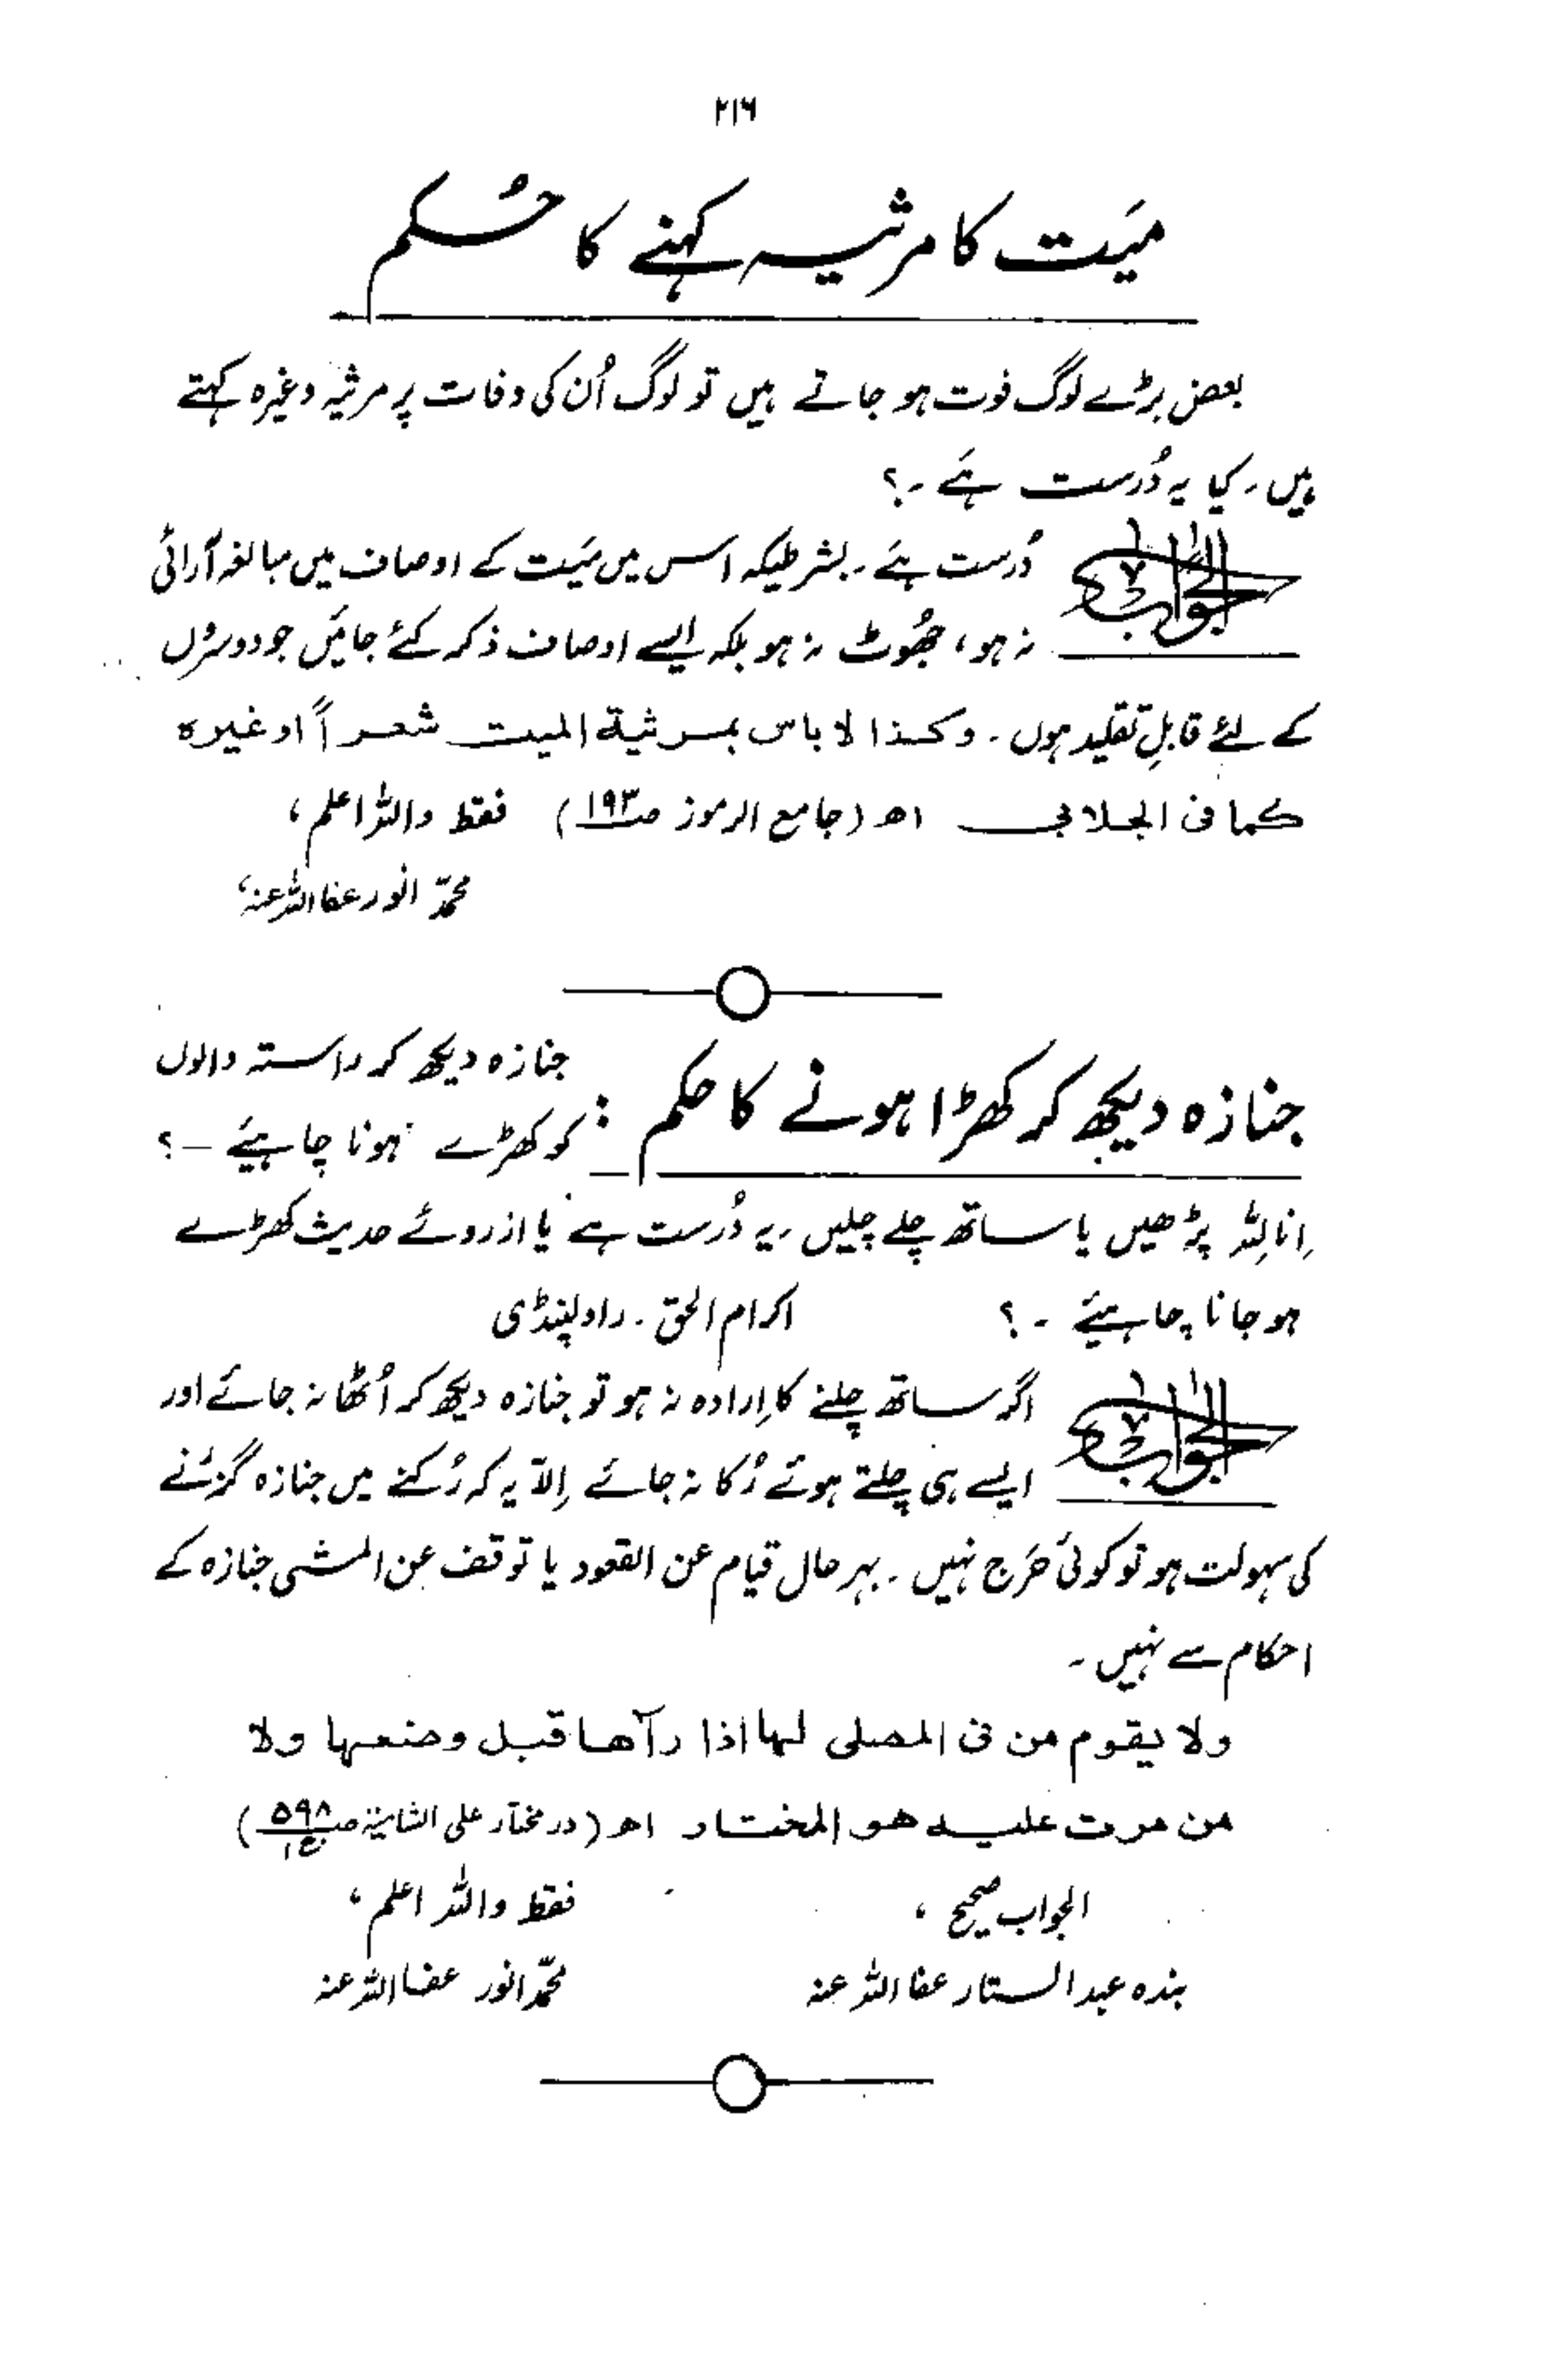 ۲۱۶
میّت کا مرثیہ کہنے کا حُکم
بعض بڑے لوگ فوت ہو جاتے ہیں تو لوگ اُن کی وفات پر مرثیہ وغیرہ کہتے
ہیں۔ کیا یہ دُرست ہے۔؟
الجواب دُرست ہے۔ بشرطیکہ اس میں میّت کے اوصاف میں مبالغہ آرائی
نہ ہو، جھُوٹ نہ ہو بلکہ ایسے اوصاف ذکر کئے جائیں جو دوسروں
کے لئے قابلِ تقلید ہوں۔ وکذا لا باس بمرثیة المیت شعراً او غیرہ
کما فی الجلابی اھ (جامع الرموز صـ۱۹۳) فقط واللہ اعلم،
محمّد انور عفا اللہ عنہ،
جنازہ دیکھ کر کھڑا ہونے کا حکم : جنازہ دیکھ کر راستہ والوں
کو کھڑے ہونا چاہیئے —؟
اِنا لِلّٰہ پڑھیں یا ساتھ چلے چلیں، یہ دُرست ہے یا ازروئے حدیث کھڑے
ہو جانا چاہیئے ۔؟ اکرام الحق۔ راولپنڈی
الجواب اگر ساتھ چلنے کا اِرادہ نہ ہو تو جنازہ دیکھ کر اُٹھا نہ جائے اور
ایسے ہی چلتے ہوئے رُکا نہ جائے اِلّا یہ کہ رُکنے میں جنازہ گزرنے
کی سہولت ہو تو کوئی حَرج نہیں۔ بہرحال قیام عن القعود یا توقف عن المشی جنازہ کے
احکام سے نہیں۔
ولا یقوم من فی المصلی لہا اذا رآھا قبل وضعہا ولا
من مرت علیہ ھو المختار اھ (در مختار علی الشامیۃ صـ۵۹۸ ج۱)
الجواب صحیح، فقط واللہ اعلم،
بندہ عبدالستار عفا اللہ عنہ محمّد انور عفا اللہ عنہ